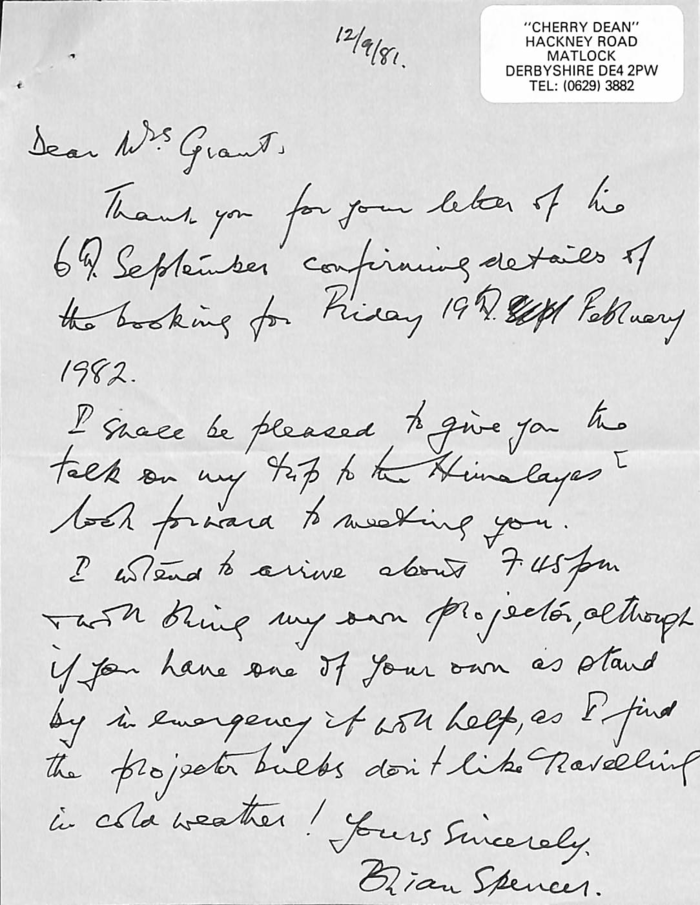 "CHERRY DEAN"
HACKNEY ROAD
MATLOCK
DERBYSHIRE DE4 2PW
TEL: (0629) 3882
12/9/81.
Dear Mrs Grant,
Thank you for your letter of the
6th. September confirming details of
the booking for Friday 19th. February
1982.
I shall be pleased to give you the
talk on my trip to the Himalayas &
look forward to meeting you.
I intend to arrive about 7.45pm
+ will bring my own projector, although
if you have one of your own as stand
by in emergency it will help, as I find
the projector bulbs don't like travelling
in cold weather! Yours Sincerely,
Brian Spencer.